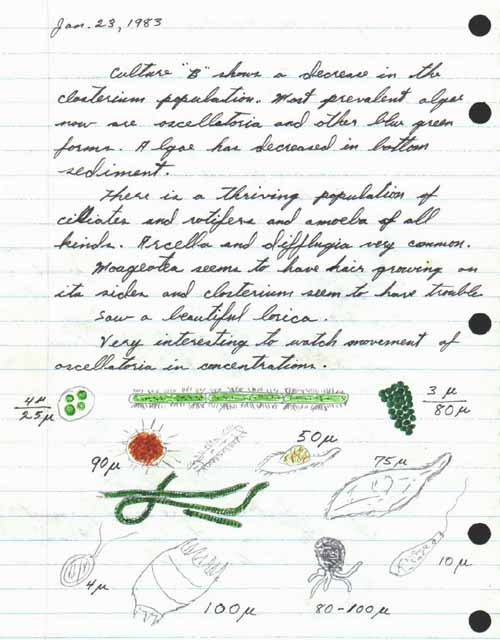 Jan. 23, 1983
Culture "B" shows a decrease in the
closterium population. Most prevalent algae
now are oscellatoria and other blue green
forms. Algae has decreased in bottom
sediment.
There is a thriving population of
cilliates and rotifers and amoeba of all
kinds. Arcella and difflugia very common.
Moageotea seems to have hair growing on
its sides and closterium seem to have trouble
Saw a beautiful lorica.
Very interesting to watch movement of
oscellatoria in concentrations.
4µ
25µ
3µ
80µ
90µ
50µ
75µ
4µ
100µ
80-100µ
10µ